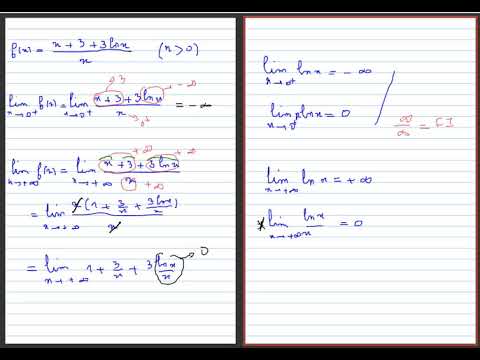 f(x) = (x + 3 + 3lnx)/x (x > 0)
lim x→0⁺ f(x) = lim x→0⁺ (x + 3 + 3lnx)/x = -∞
→3 → -∞
→0⁺
lim x→+∞ f(x) = lim x→+∞ (x + 3 + 3lnx)/x
+∞ +∞
+∞
= lim x→+∞ x(1 + 3/x + 3lnx/x)/x
= lim x→+∞ 1 + 3/x + 3 lnx/x → 0
lim x→0⁺ lnx = -∞
lim x→0⁺ xlnx = 0
∞/∞ = FI
lim x→+∞ lnx = +∞
* lim x→+∞ lnx/x = 0